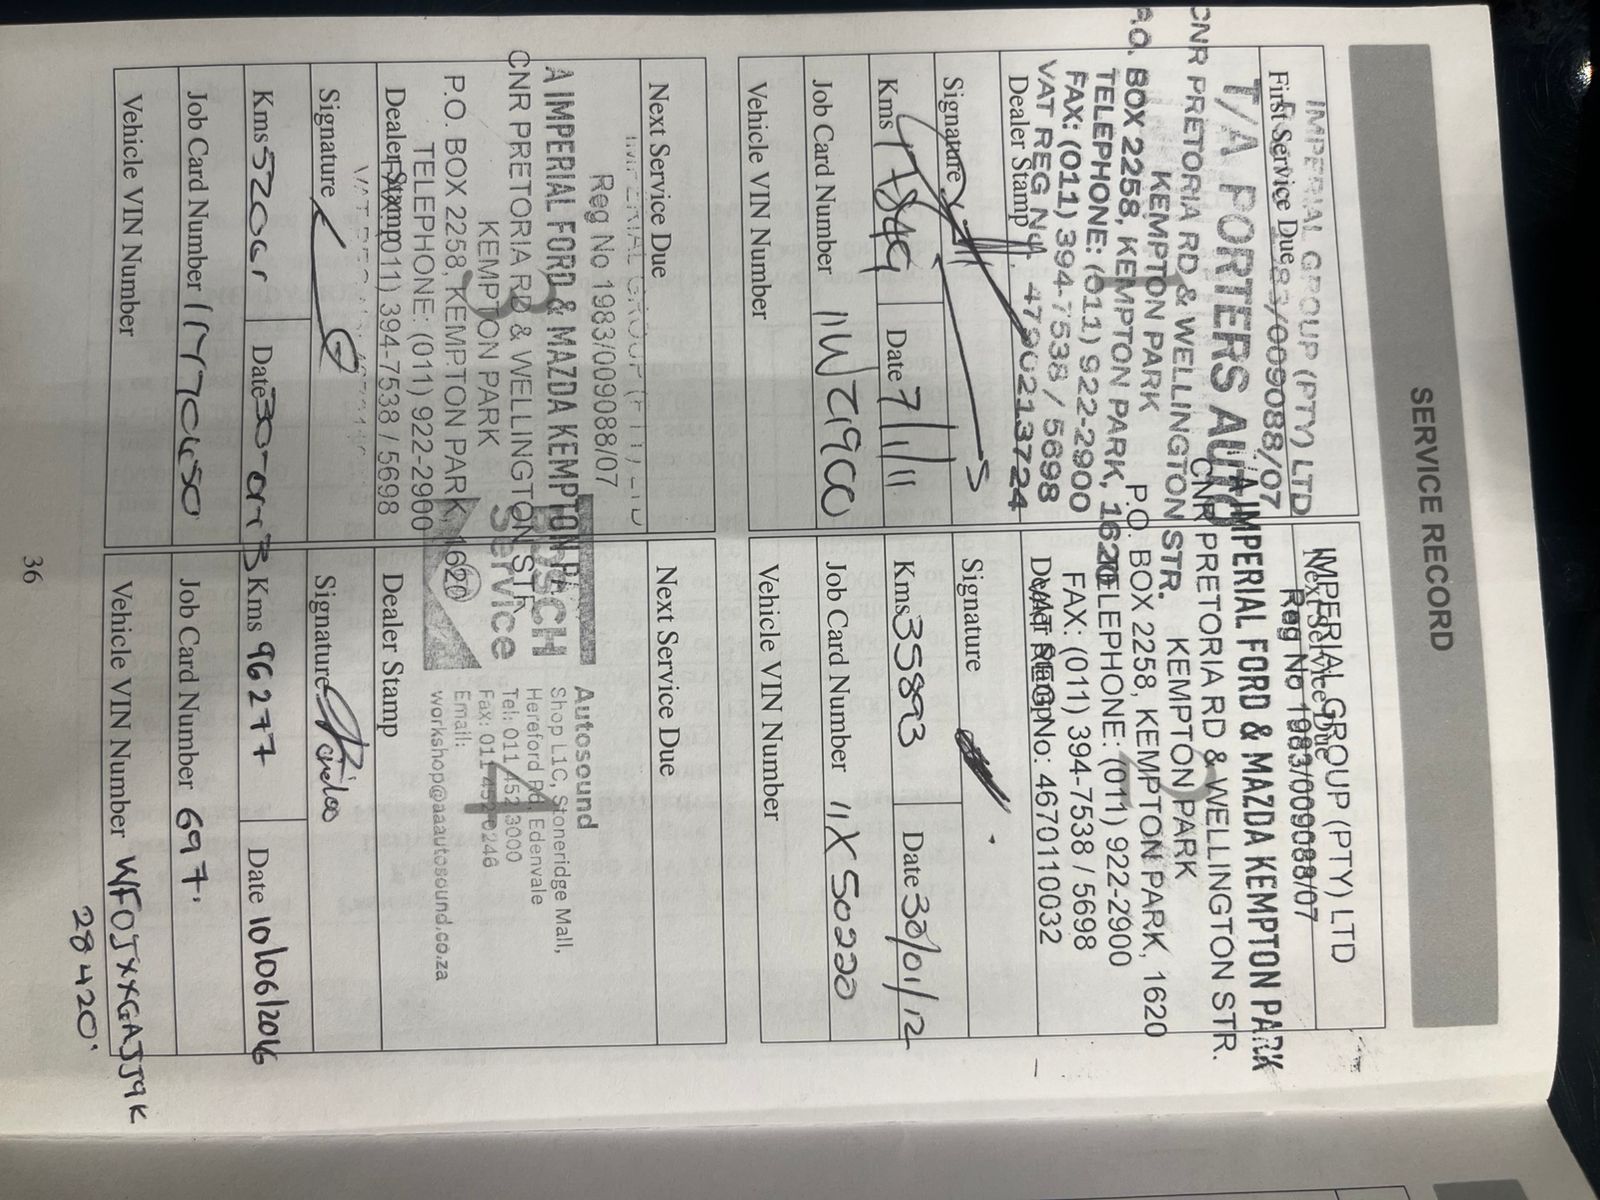 SERVICE RECORD
IMPERIAL GROUP (PTY) LTD
First Service Due 83/009088/07
T/A PORTERS AUTO
CNR PRETORIA RD & WELLINGTON STR.
KEMPTON PARK
P.O. BOX 2258, KEMPTON PARK, 1620
TELEPHONE: (011) 922-2900
FAX: (011) 394-7538 / 5698
VAT REG No: 4790213724
Dealer Stamp
Signature
Kms
Date 7/1/11
Job Card Number
Vehicle VIN Number
IMPERIAL GROUP (PTY) LTD
Next Service Due
Reg No 1983/009088/07
A IMPERIAL FORD & MAZDA KEMPTON PARK
CNR PRETORIA RD & WELLINGTON STR.
KEMPTON PARK
P.O. BOX 2258, KEMPTON PARK, 1620
TELEPHONE: (011) 922-2900
FAX: (011) 394-7538 / 5698
Dealer Stamp
VAT REG No: 4670110032
2
Signature
Kms 35893
Date 30/01/12
Job Card Number 11X50220
Vehicle VIN Number
Next Service Due
IMPERIAL GROUP (PTY) LTD
Reg No 1983/009088/07
A IMPERIAL FORD & MAZDA KEMPTON PA
CNR PRETORIA RD & WELLINGTON STR.
KEMPTON PARK
3
P.O. BOX 2258, KEMPTON PARK, 1620
TELEPHONE: (011) 922-2900
Dealer Stamp
(011) 394-7538 / 5698
Signature
Kms
Date
Job Card Number
Vehicle VIN Number
Next Service Due
BOSCH
Service
Autosound
Shop L1C, Stoneridge Mall,
Hereford Rd, Edenvale
Tel: 011 452 3000
Fax: 011 452 0246
Email:
workshop@aaautosound.co.za
4
Dealer Stamp
Signature
Kms 96277
Date 10/06/2016
Job Card Number 6997.
Vehicle VIN Number WF0JXXGAJJ9K
28420.
36